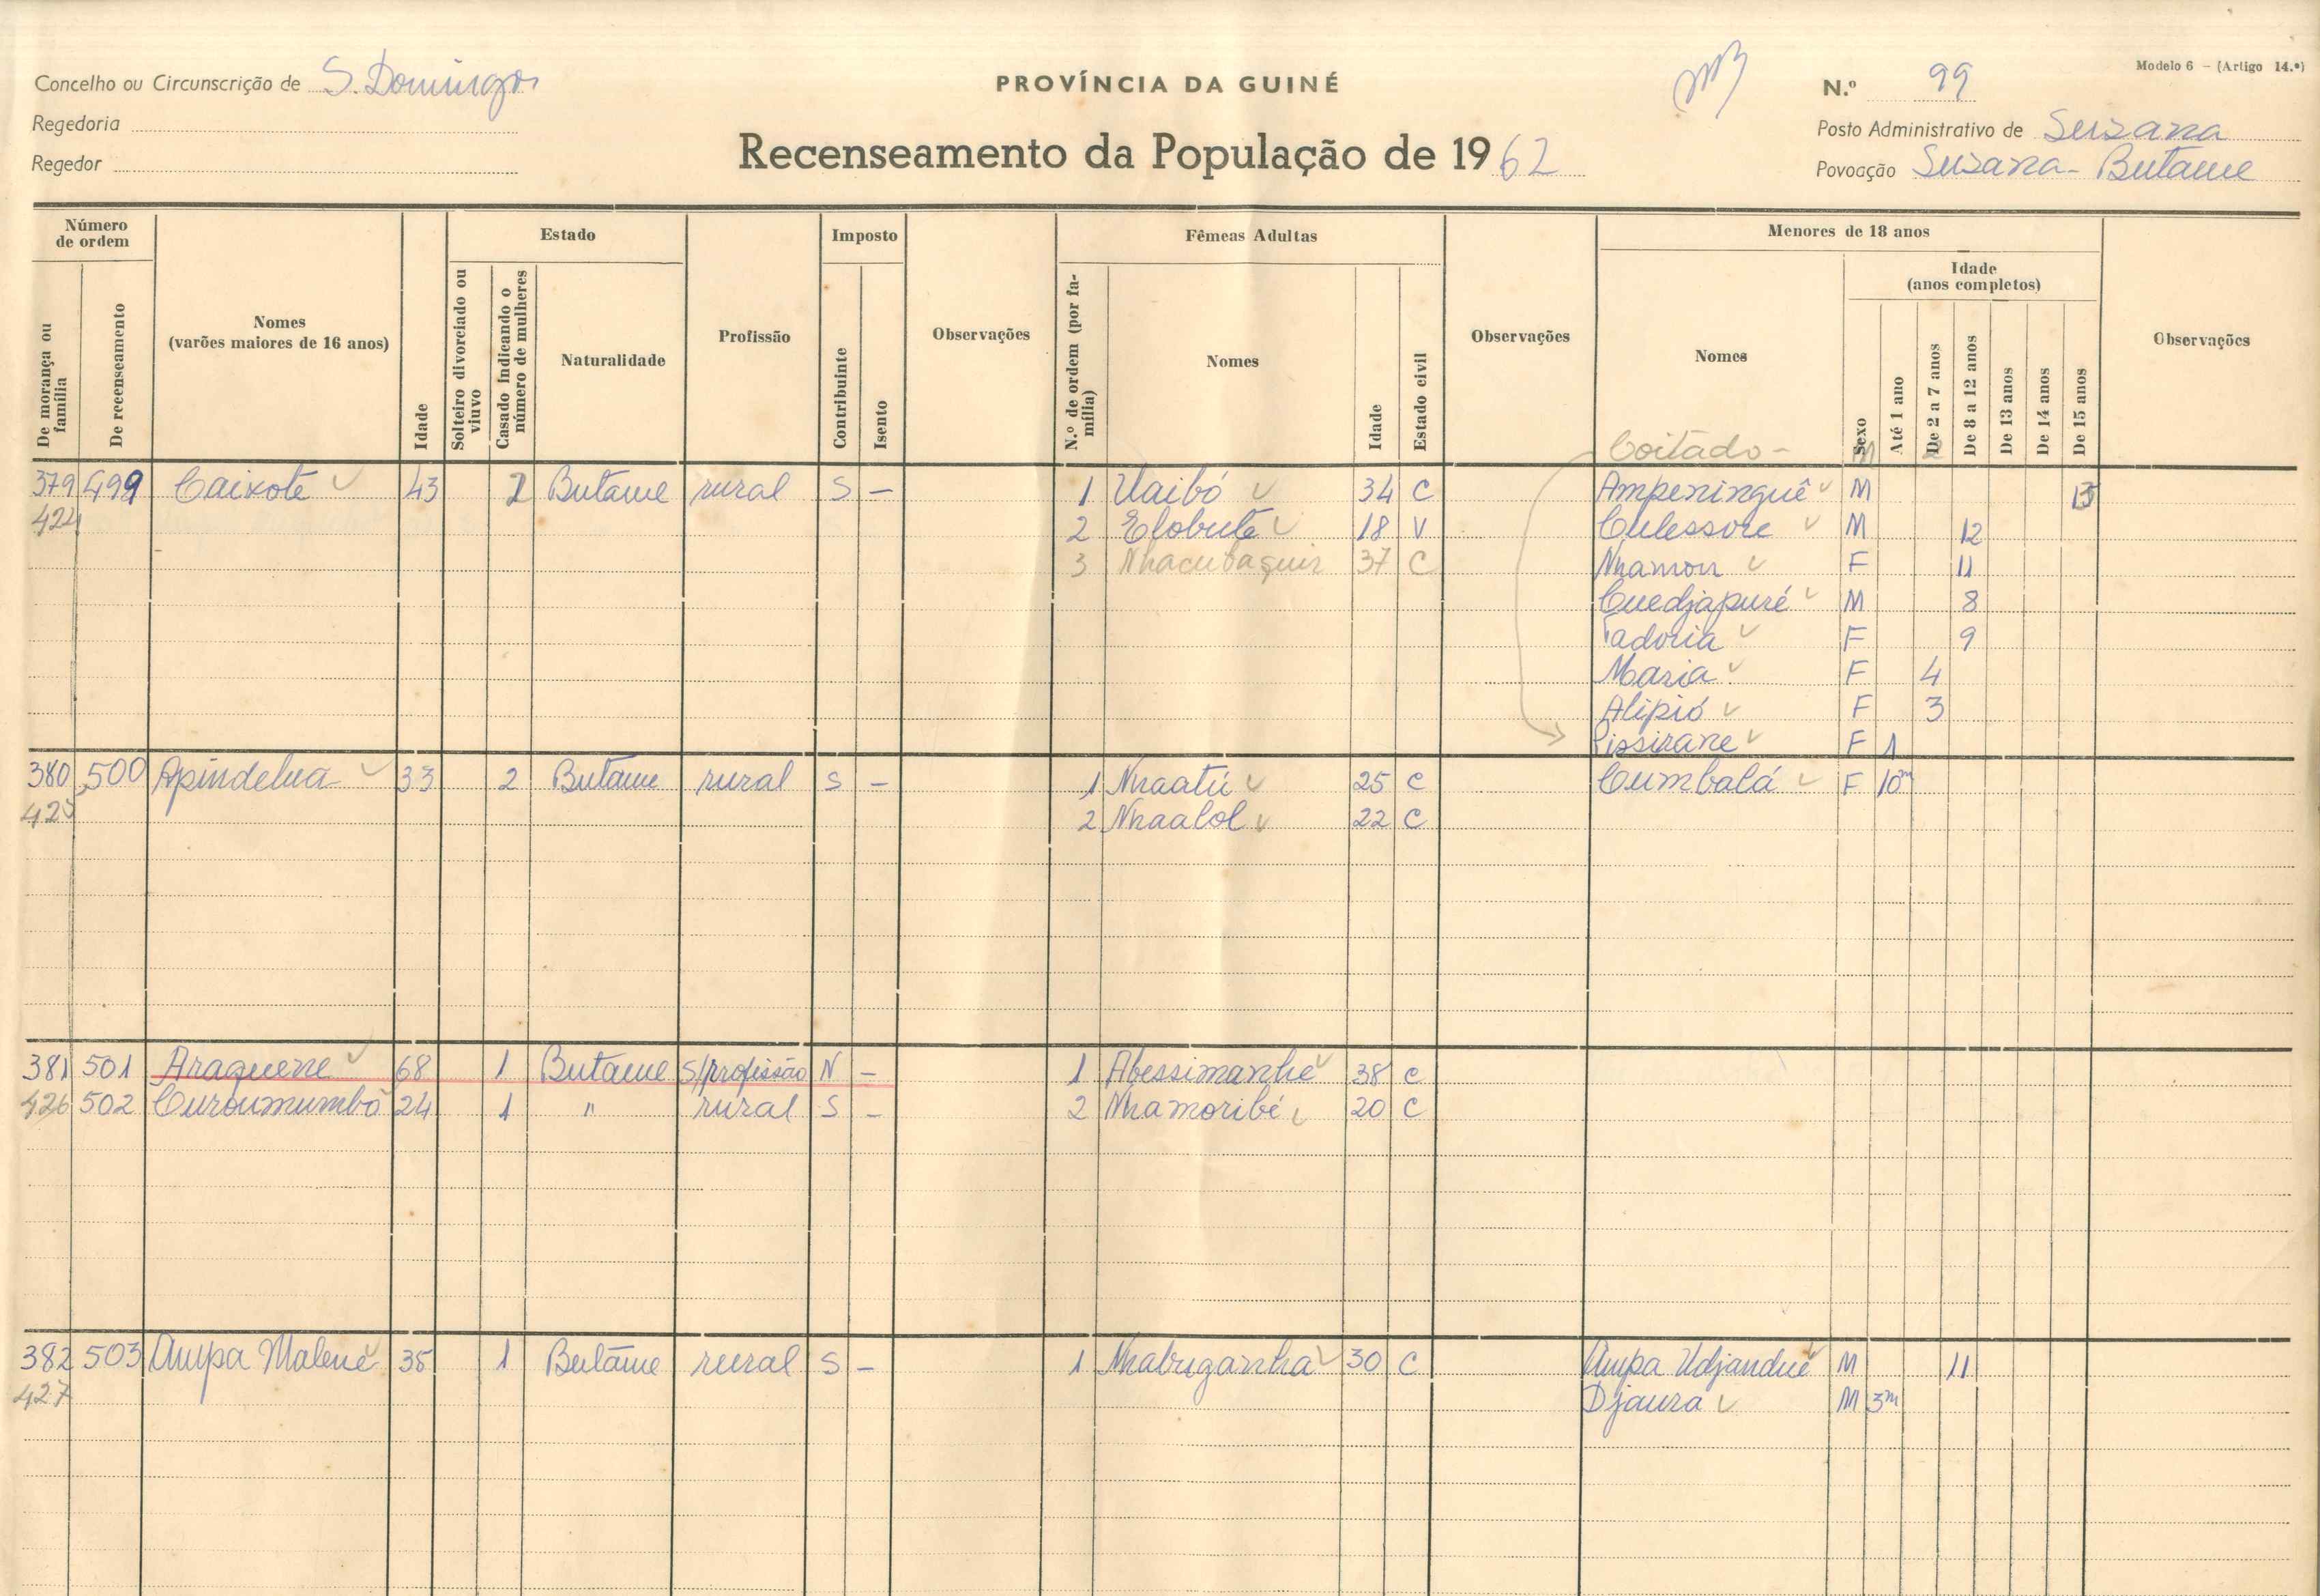 Modelo 6 - (Artigo 14.º)
Concelho ou Circunscrição de S. Domingos
PROVÍNCIA DA GUINÉ
N.º 99
Regedoria
Posto Administrativo de Suzana
Regedor
Recenseamento da População de 1962
Povoação Suzana - Butame
Número de ordem
Estado
Imposto
Fêmeas Adultas
Menores de 18 anos
De morança ou família
De recenseamento
Nomes (varões maiores de 16 anos)
Idade
Solteiro divorciado ou viuvo
Casado indicando o número de mulheres
Naturalidade
Profissão
Contribuinte
Isento
Observações
N.º de ordem (por família)
Nomes
Idade
Estado civil
Observações
Nomes
Sexo
Idade (anos completos)
Até 1 ano
De 2 a 7 anos
De 8 a 12 anos
De 13 anos
De 14 anos
De 15 anos
Observações
Coitado - M 2
379 499 Caixote 43 2 Butame rural S - 1 Uaibó 34 C Ampeninguê M 15
424 2 Elobute 18 V Culessore M 12
3 Nhacubaquir 37 C Nhamon F 11
Cuedjapuré M 8
Tadoria F 9
Maria F 4
Alipió F 3
Pissirane F 1
380 500 Apindelua 33 2 Butame rural S - 1 Nhaatú 25 C Cumbalá F 10m
425 2 Nhaalol 22 C
381 501 Araguene 68 1 Butame S/profissão N - 1 Abessimanhe 38 C
426 502 Curoumumbo 24 1 " rural S - 2 Nhamoribé 20 C
382 503 Ampa Malene 35 1 Butame rural S - 1 Nhabuganha 30 C Ampa Udjandue M 11
427 Djaura M 3m